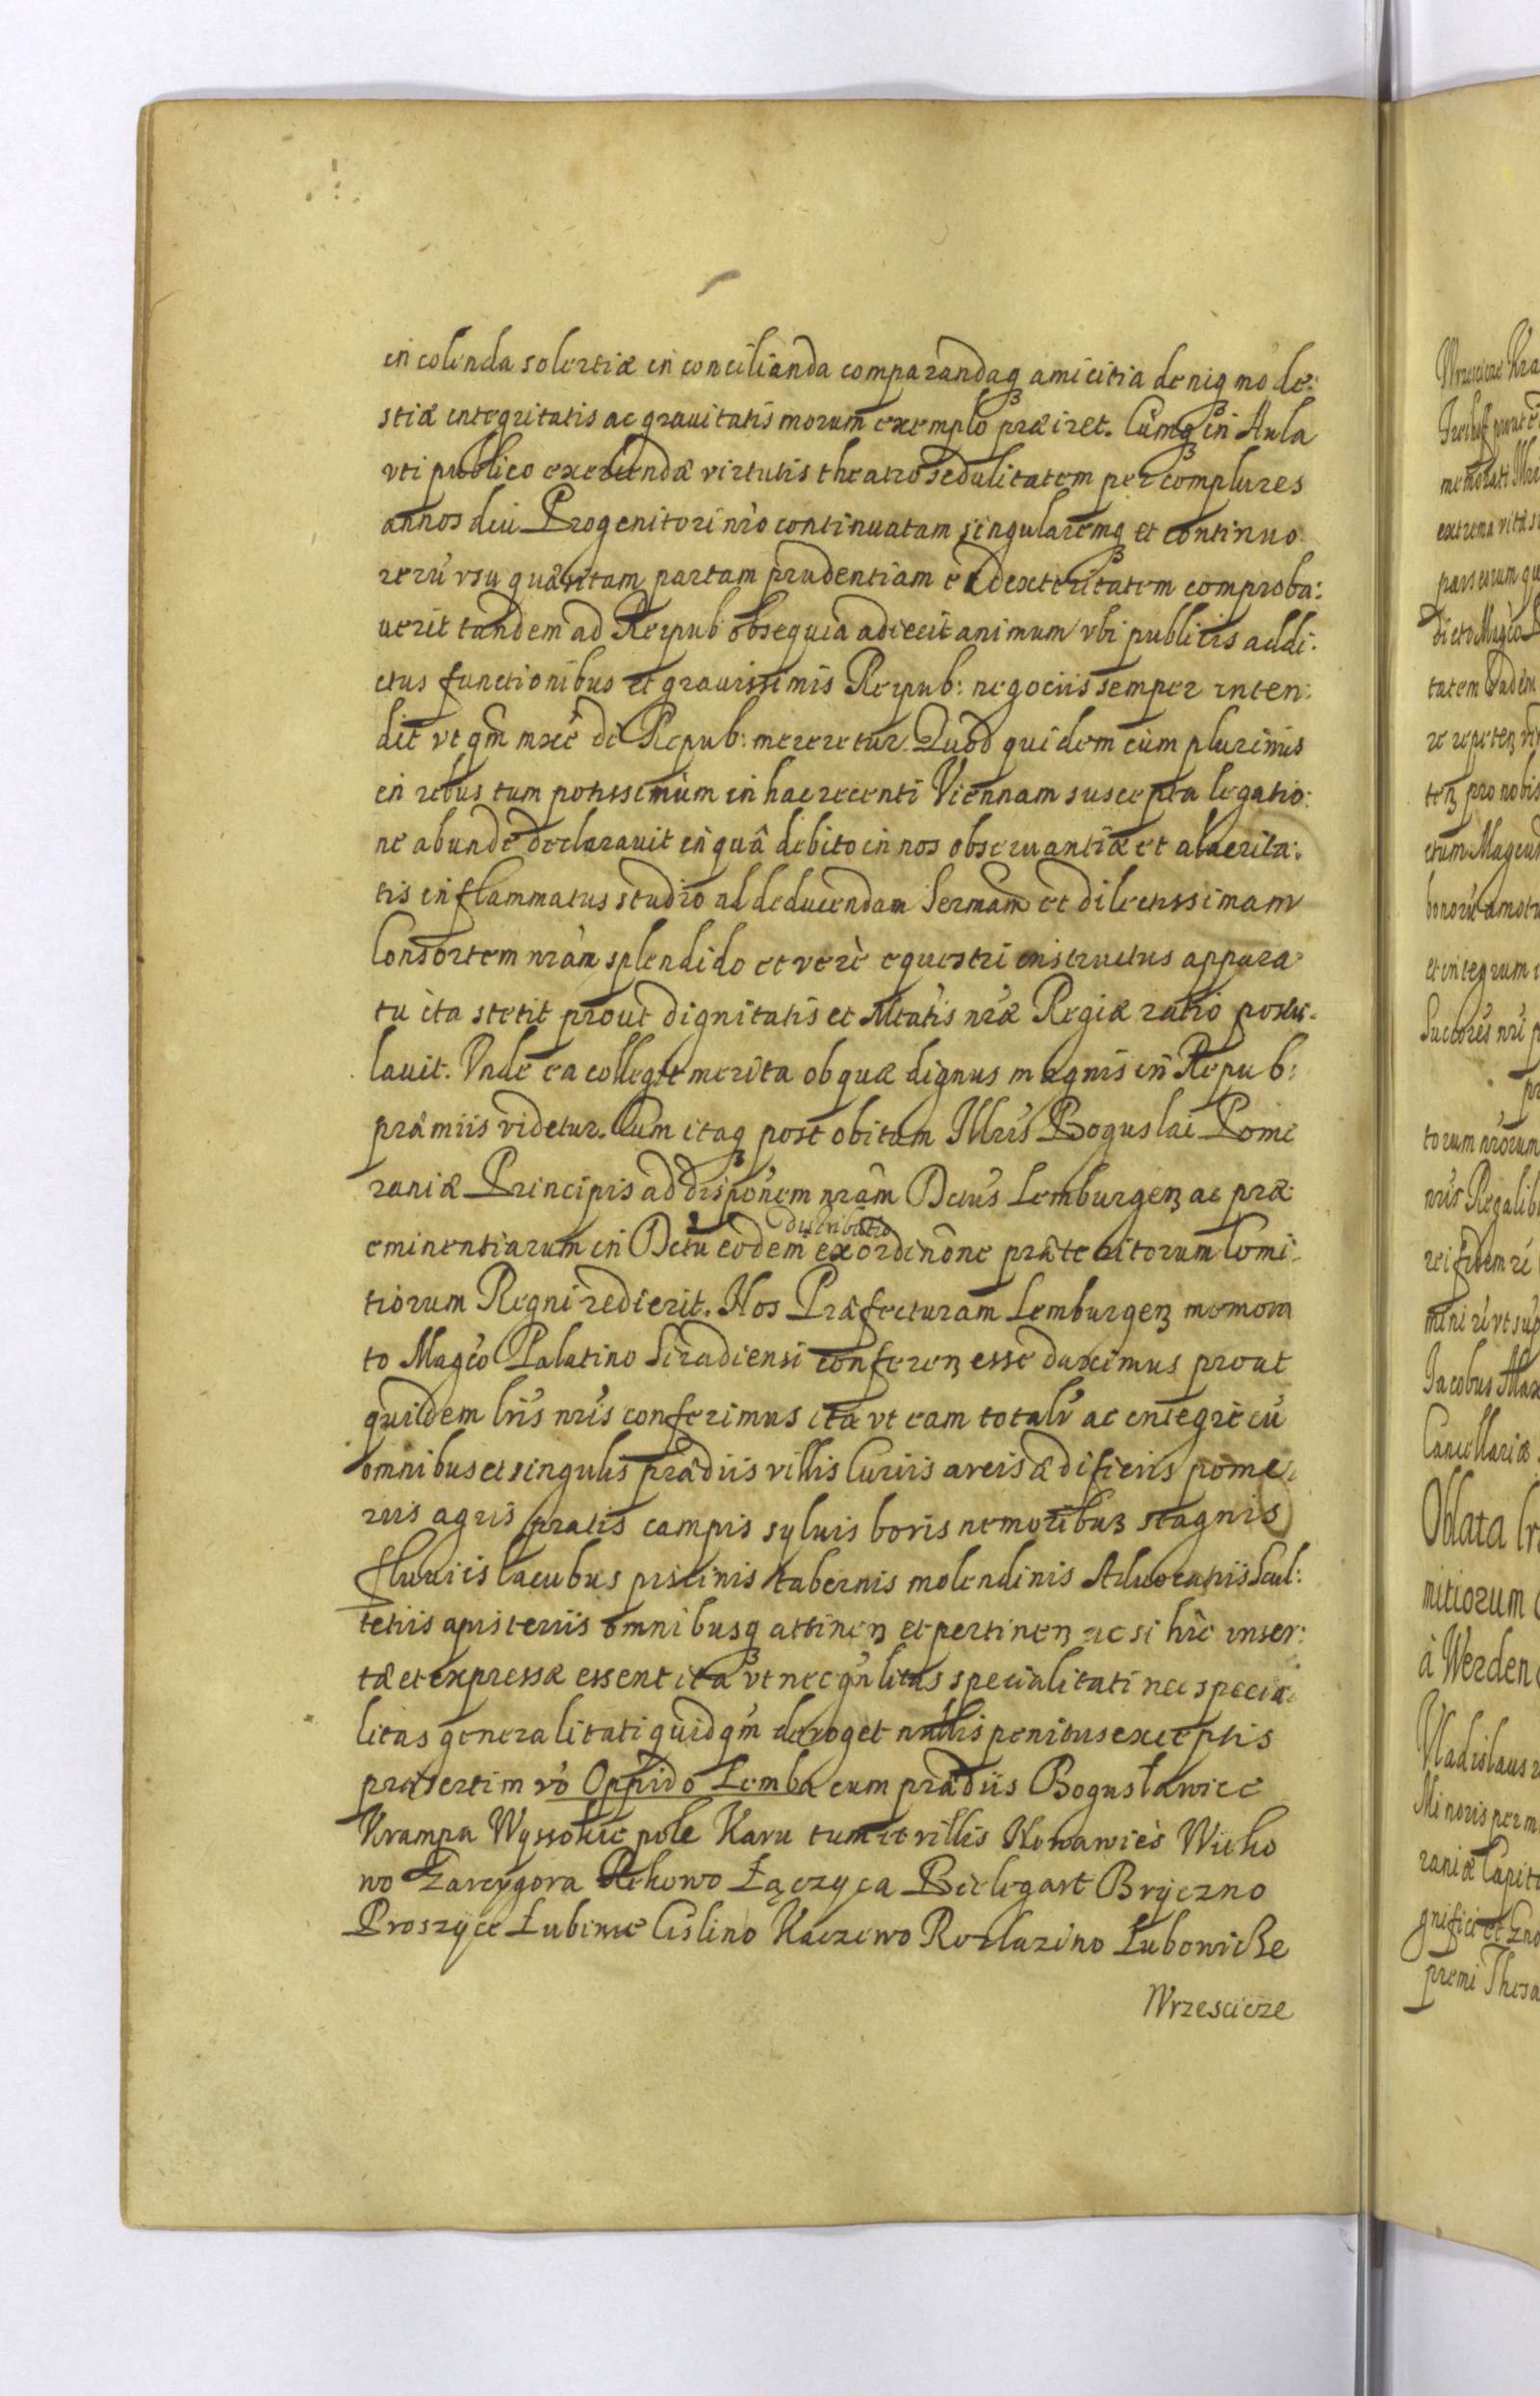 in colenda solertiæ in concilianda comparandaq amicitia deniq mode:
stiæ integritatis ac grauitatis morum exemplo præiret. Cumq in Aula
vti publico excolendæ virtutis theatro sedulitatem per complures
annos diui Progenitori nro continuatam singularemq et continuo
rerū vsu quæsitam partam prudentiam et dexteritatem comproba:
uerit tandem ad Reipub obsequia adiecit animum vbi publicis addi:
ctus functionibus et grauissimis Reipub: negociis semper inten:
dit vt qm mxe de Repub: mereretur. Quod quidem cum plurimis
in rebus tum potissimum in hac recenti Viennam suscepta legatio:
ne abunde declarauit in quâ debito in nos obseruantiæ et alacrita:
tis inflammatus studio ad deducendam Sermam et dilectissimam
Consortem nram splendido et verè equestri instructus appara:
tu ita stetit prout dignitatis et Mtatis nræ Regiæ ratio postu:
lauit. Vnde ea collegit merita ob quæ dignus magnis in Repub:
præmiis videtur. Cum itaq post obitum Illris Boguslai Pome
raniæ Principis ad disponem nram Dctus Lemburgen ac præ
distributio
eminentiarum in Dctu eodem ex ordinone præteritorum Comi:
tiorum Regni redierit. Nos Præfecturam Lemburgen memora
to Magco Palatino Siradiensi conferen esse duximus prout
quidem lris nris conferimus ita vt eam totalr ac integre cū
omnibus et singulis prædiis villis Curiis areis ædificiis pome:
riis agris pratis campis syluis boris nemoribus stagnis
fluuiis lacubus piscinis tabernis molendinis Aduocatiis Scul:
tetiis apisteriis omnibusq attinen et pertinen ac si hic inser:
tæ et expressæ essent ita vt nec gnlitas specialitati nec specia:
litas generalitati quidqm deroget nullis penitus exceptis
præsertim vo Oppido Lemba cum prædiis Bogusławice
Krampa Wyssokie pole Karu tum et villis Nowawieś Wicko
wo Garcygora Rekowo Łączyca Bielegart Bryczno
Proszyce Łubinie Cislino Kaczewo Rozlazino Łubowicke
Wrzescicze